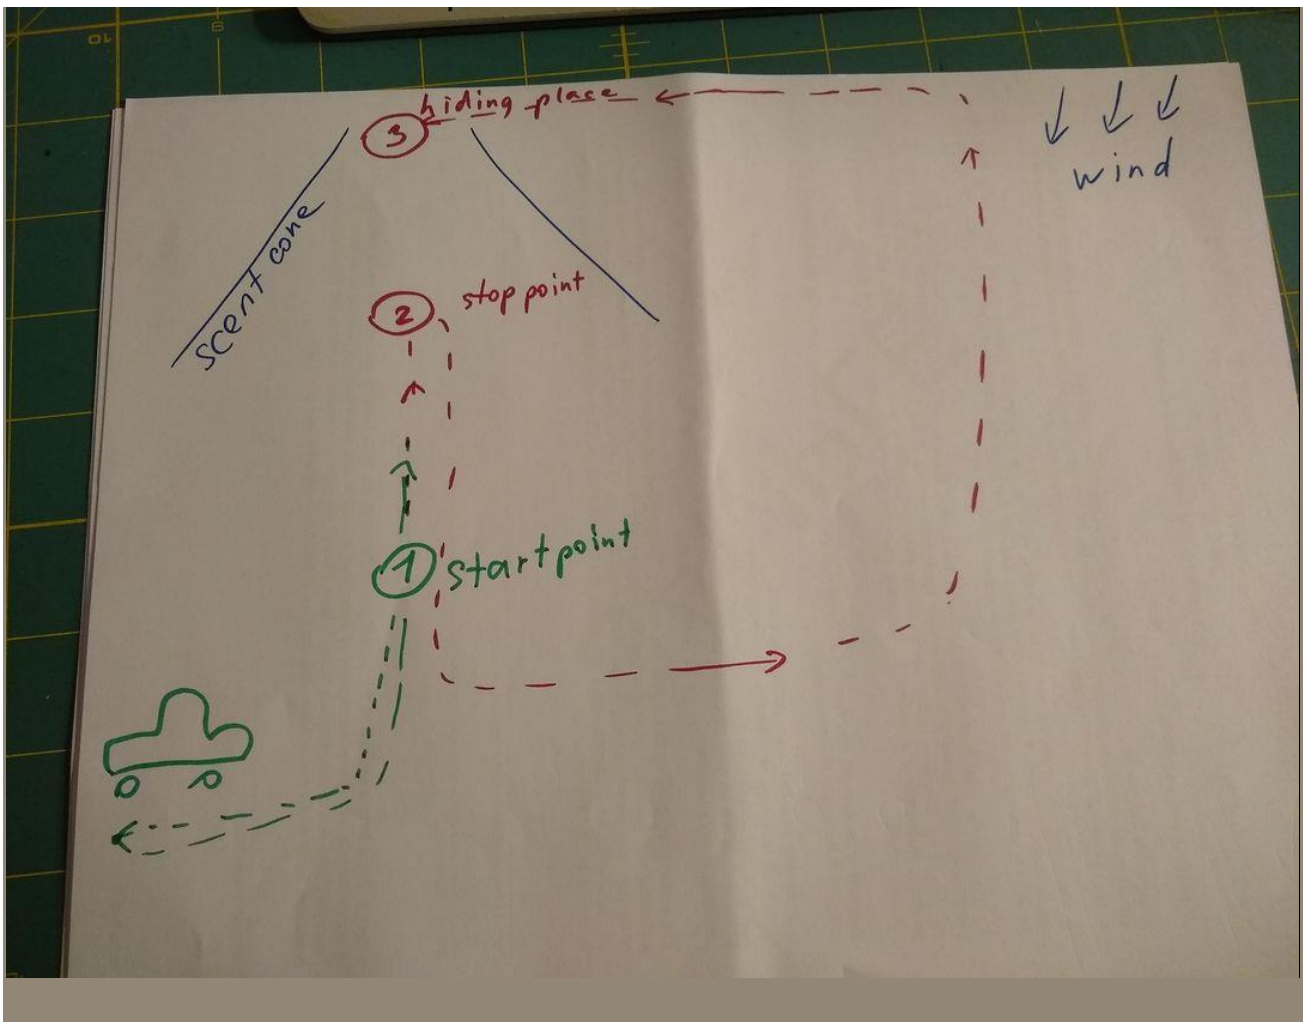 10
9
3 hiding place
wind
scent cone
2 stop point
1 startpoint